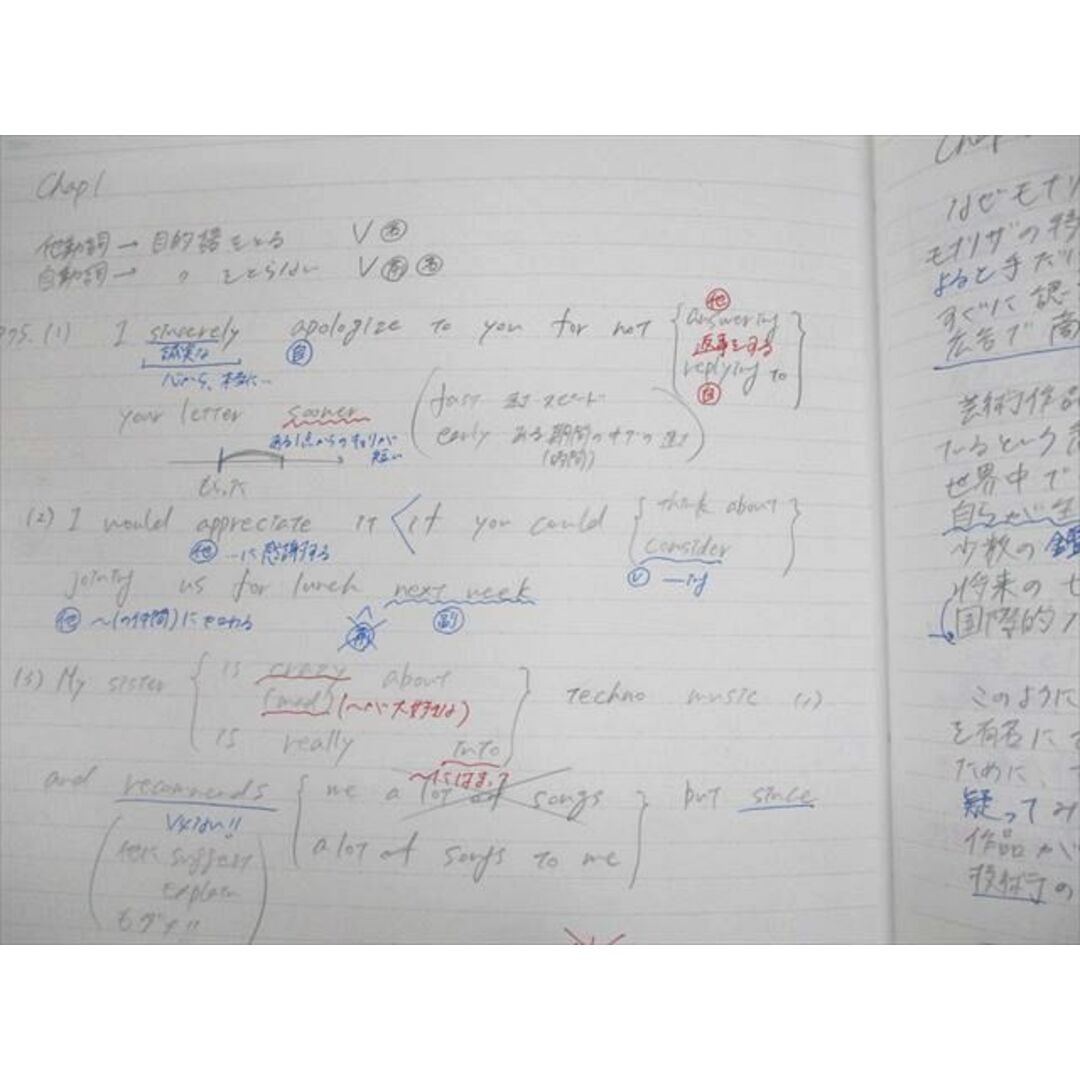 Chap 1
他動詞 → 目的語をとる V 名
自動詞 → 〃 をとらない V 前 名
P95. (1) I sincerely apologize to you for not { answering 他
返事をする
replying to 自 }
誠実な
自
心から、本当に…
your letter sooner
ある1点からのキョリが短い
( fast 動・スピード
early ある期間の中での
(時間) )
(2) I would appreciate it < if you could { think about
consider }
他 …に感謝する
V —ing
joining us for lunch next week
他 〜(の仲間)に加わる
前 副
(3) My sister { is crazy about
(mad) (〜が大好きな)
is really into } techno music
〜にはまって
and recommends { me a lot of songs
a lot of songs to me } but since
suggest
explain
モダメ!!
Chap
なぜモナリ
モナリザの特
よると手だけ
すぐに認
広告で商
芸術作品
ているという
世界中で
自らが生
少数の
将来の
国際的
このように
を有名に
ために、
疑ってみ
作品が
技術の